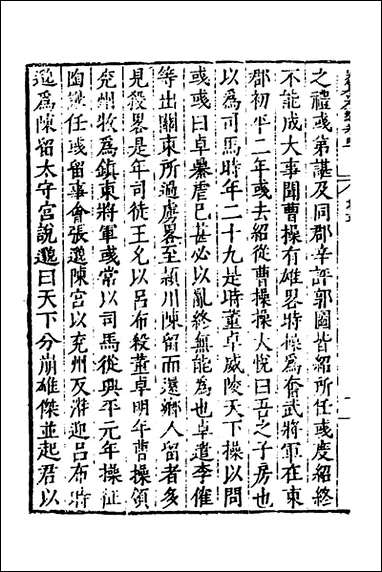 之禮彧弟諶及同郡辛評郭圖皆紹所任彧度紹終
不能成大事聞曹操有雄畧時操為奮武將軍在東
郡初平二年彧去紹從曹操操大悅曰吾之子房也
以為司馬時年二十九是時董卓威陵天下操以問
彧彧曰卓暴虐已甚必以亂終無能為也卓遣李傕
等出關東所過虜畧至潁川陳留而還鄉人留者多
見殺畧是年司徒王允以呂布殺董卓明年曹操領
兖州牧為鎮東將軍彧常以司馬從興平元年操征
陶謙任彧留事會張邈陳宮以兖州反潛迎呂布時
邈為陳留太守宮說邈曰天下分崩雄傑並起君以